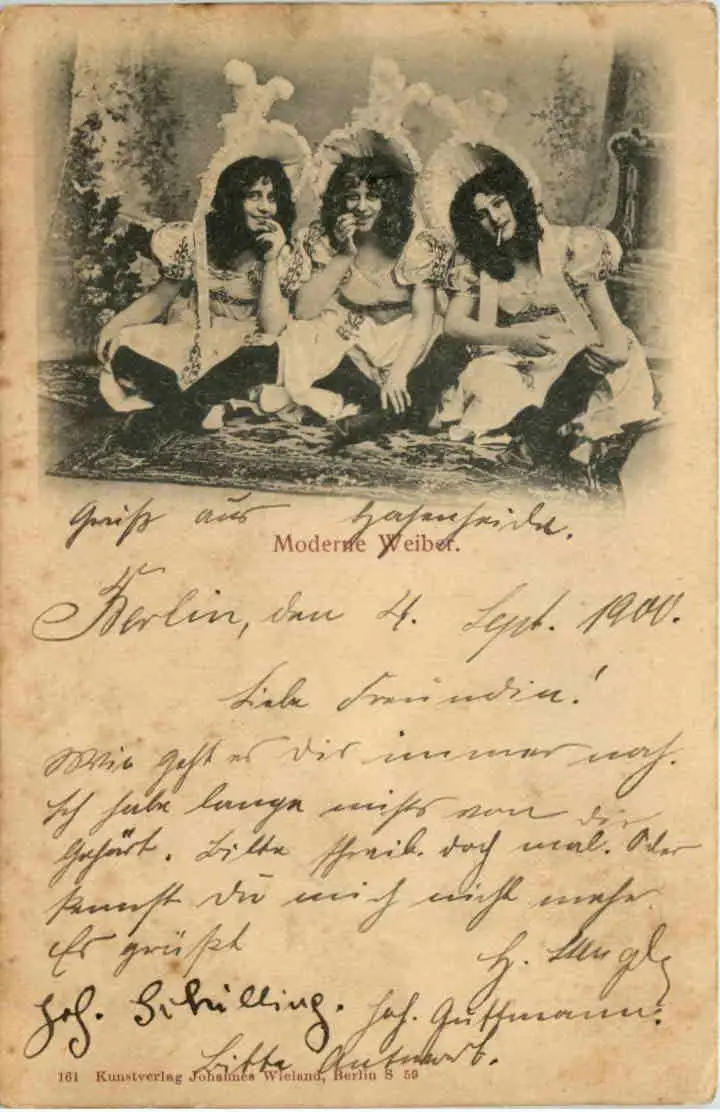 Gruß aus Hasenheide.
Moderne Weiber.
Berlin, den 4. Sept. 1900.
Liebe Freundin!
Wie geht es Dir immer noch.
Ich habe lange nichts von dir
Gehört. Bitte schreib. doch mal. Oder
kennst Du mich nicht mehr.
Es grüßt H.
Joh. Schilling. Joh. Guttmann.
Bitte Antwort.
161 Kunstverlag Johannes Wieland, Berlin S 59